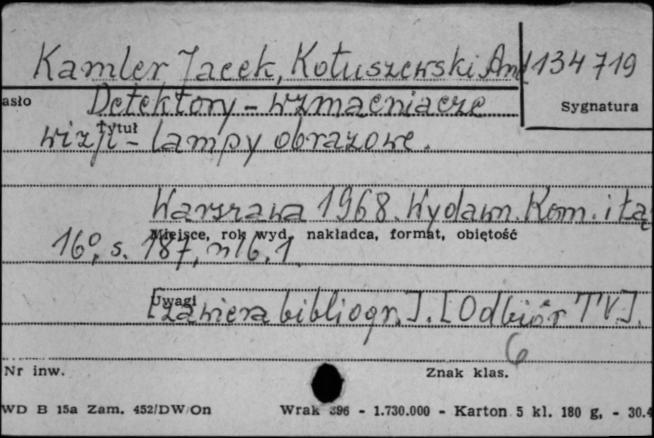 Kamler Jacek, Kotuszewski And 134719
asło Detektory - wzmacniacze Sygnatura
Tytuł wizji - lampy obrazowe.
Warszawa 1968. Wydawn. Kom. i Łą
Miejsce, rok wyd. nakładca, format, objętość
16°, s. 187, nlb. 1
Uwagi
[Zawiera bibliogr.]. [Odbiór TV].
6
Nr inw. Znak klas.
WD B 15a Zam. 452/DW/On Wrak 396 - 1.730.000 - Karton 5 kl. 180 g, - 30.4